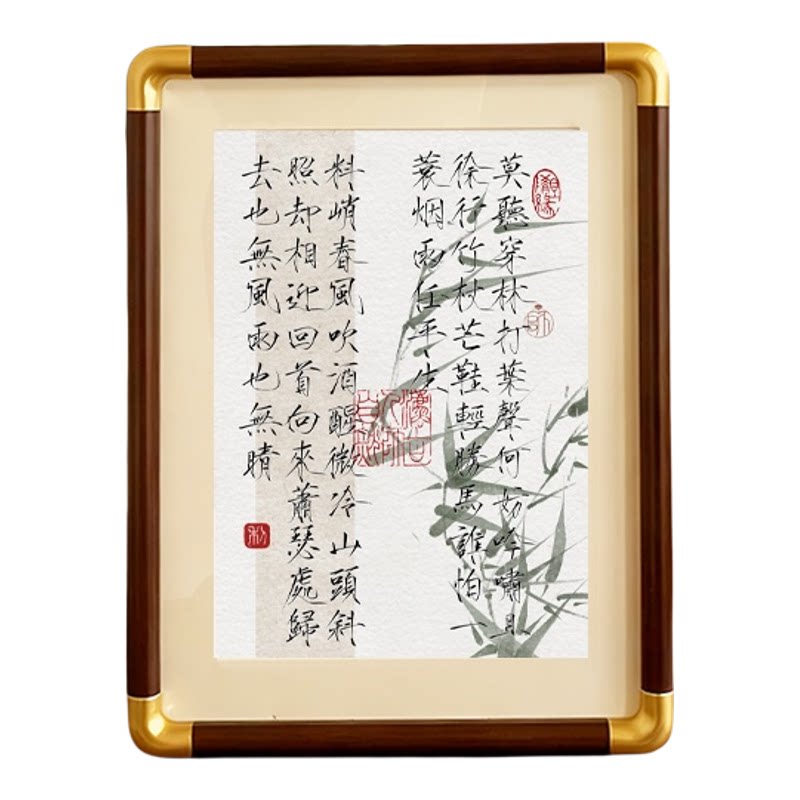 莫聽穿林打葉聲何妨吟嘯且
徐行竹杖芒鞋輕勝馬誰怕一
蓑烟雨任平生
料峭春風吹酒醒微冷山頭斜
照却相迎回首向來蕭瑟處歸
去也無風雨也無晴